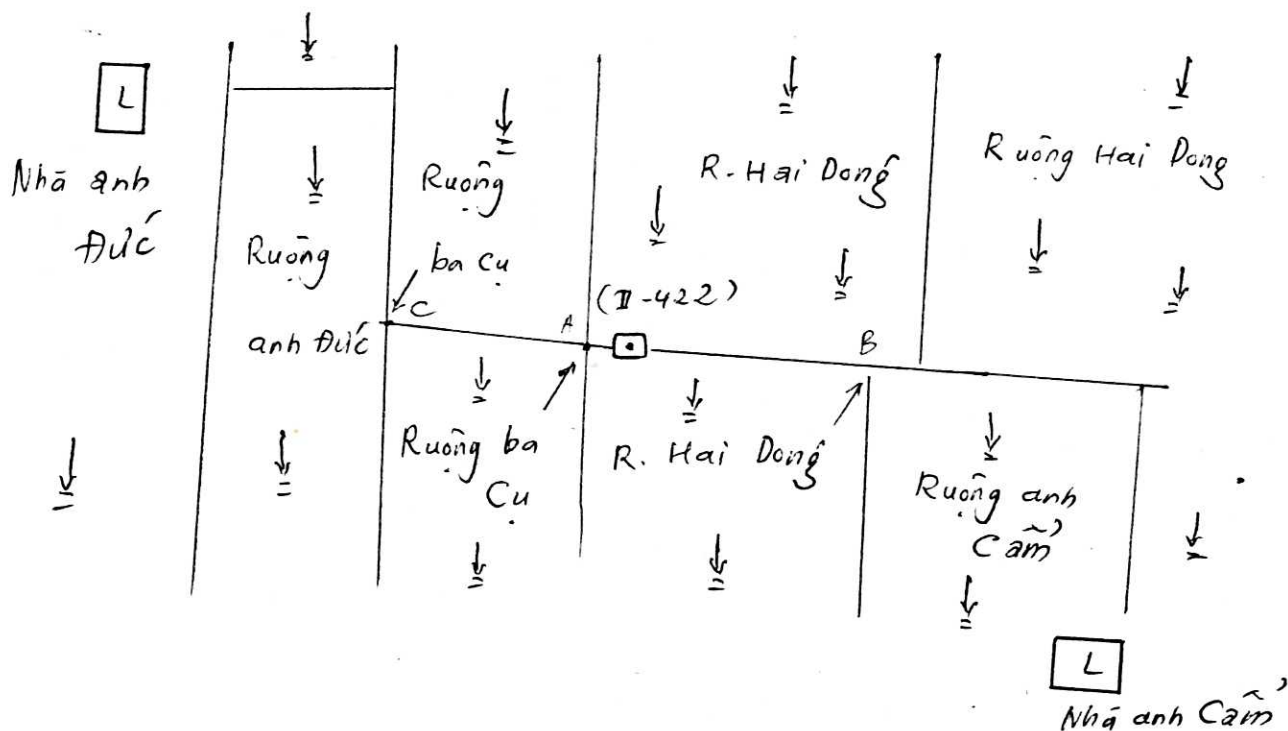 L
Nhà anh
Đức
Ruộng
anh Đức
Ruộng
ba Cụ
C
A
(II-422)
R. Hai Dong
B
Ruộng Hai Dong
Ruộng ba
Cụ
R. Hai Dong
Ruộng anh
Cẩm
L
Nhà anh Cẩm